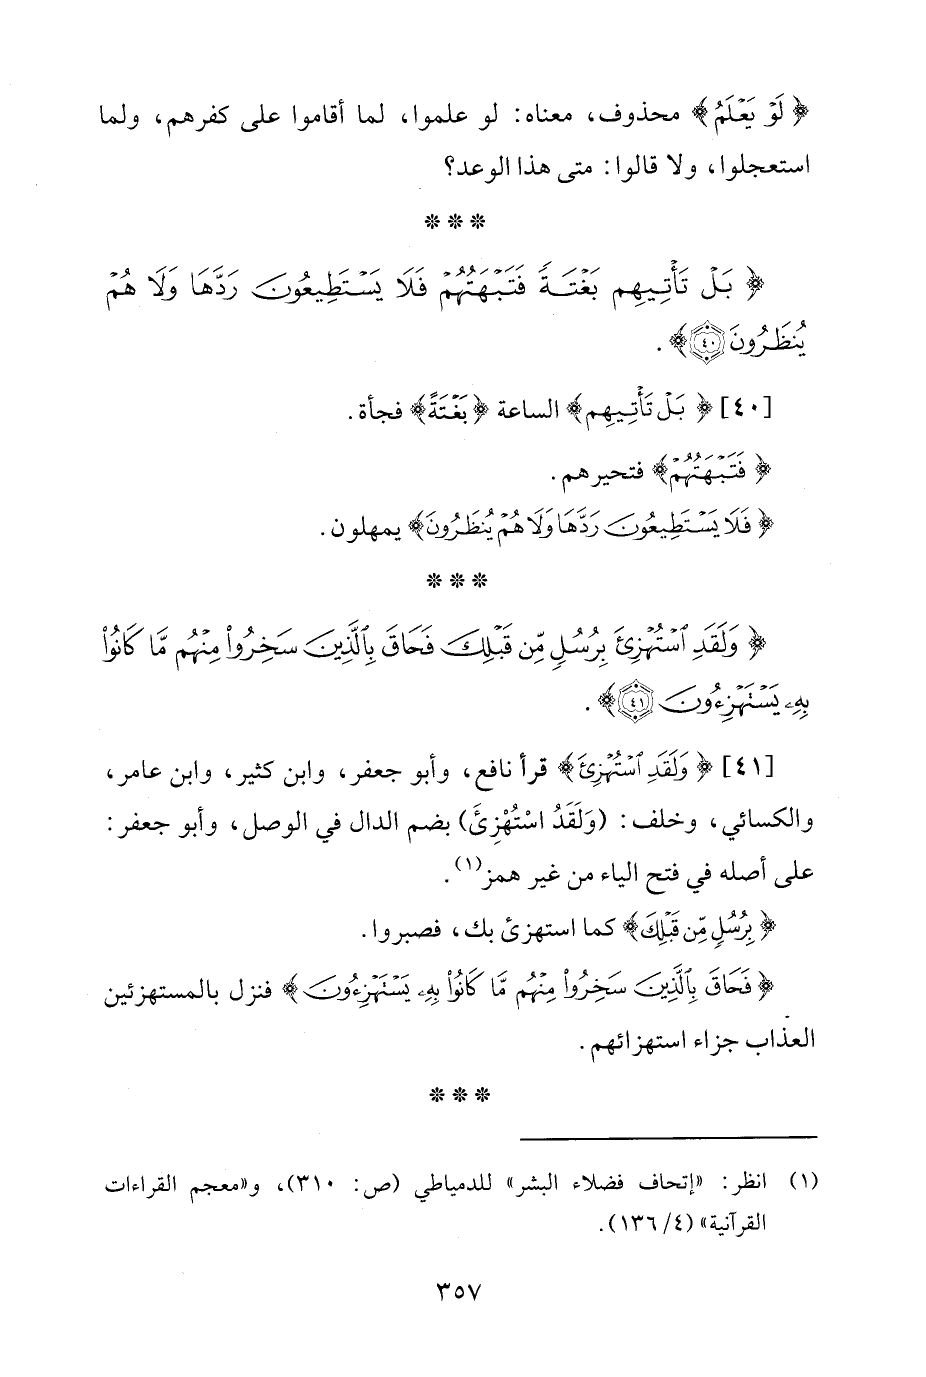 ﴿ لَوْ يَعْلَمُ ﴾ محذوف، معناه: لو علموا، لما أقاموا على كفرهم، ولما
استعجلوا، ولا قالوا: متى هذا الوعد؟
* * *
﴿ بَلْ تَأْتِيهِم بَغْتَةً فَتَبْهَتُهُمْ فَلَا يَسْتَطِيعُونَ رَدَّهَا وَلَا هُمْ
يُنظَرُونَ ٤٠ ﴾ .
[٤٠] ﴿ بَلْ تَأْتِيهِم ﴾ الساعة ﴿ بَغْتَةً ﴾ فجأة.
﴿ فَتَبْهَتُهُمْ ﴾ فتحيرهم.
﴿ فَلَا يَسْتَطِيعُونَ رَدَّهَا وَلَا هُمْ يُنظَرُونَ ﴾ يمهلون.
* * *
﴿ وَلَقَدِ ٱسْتُهْزِئَ بِرُسُلٍ مِّن قَبْلِكَ فَحَاقَ بِٱلَّذِينَ سَخِرُوا۟ مِنْهُم مَّا كَانُوا۟
بِهِۦ يَسْتَهْزِءُونَ ٤١ ﴾ .
[٤١] ﴿ وَلَقَدِ ٱسْتُهْزِئَ ﴾ قرأ نافع، وأبو جعفر، وابن كثير، وابن عامر،
والكسائي، وخلف: (وَلَقَدُ اسْتُهْزِئَ) بضم الدال في الوصل، وأبو جعفر:
على أصله في فتح الياء من غير همز(١).
﴿ بِرُسُلٍ مِّن قَبْلِكَ ﴾ كما استهزئ بك، فصبروا.
﴿ فَحَاقَ بِٱلَّذِينَ سَخِرُوا۟ مِنْهُم مَّا كَانُوا۟ بِهِۦ يَسْتَهْزِءُونَ ﴾ فنزل بالمستهزئين
العذاب جزاء استهزائهم.
* * *
(١) انظر: «إتحاف فضلاء البشر» للدمياطي (ص: ٣١٠)، و«معجم القراءات
القرآنية» (٤/ ١٣٦).
٣٥٧